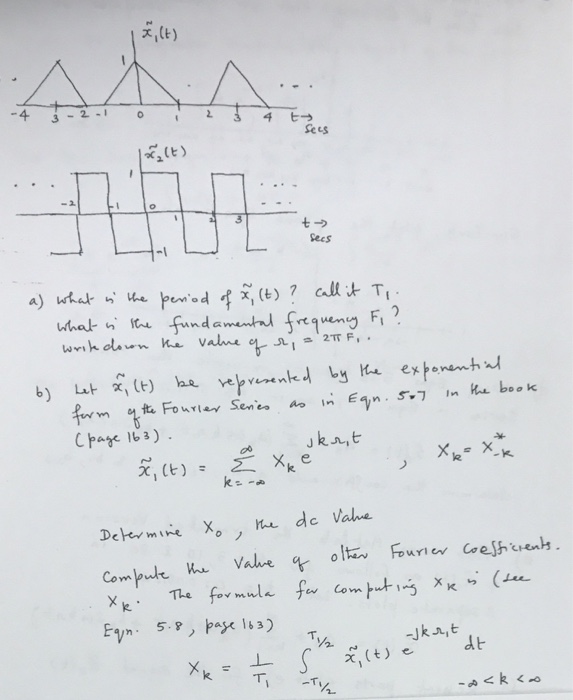 x̃₁(t)
1
-4 3 -2 -1 0 1 2 3 4 t→
secs
x̃₂(t)
1
-2 -1 0 1 2 3 t→
secs
-1
a) what is the period of x̃₁(t) ? call it T₁.
what is the fundamental frequency F₁ ?
write down the value of Ω₁ = 2π F₁ .
b) Let x̃₁(t) be represented by the exponential
form of the Fourier Series as in Eqn. 5.7 in the book
(page 163).
x̃₁(t) = Σ_{k=-∞}^{∞} X_k e^{jkΩ₁t} , X_k = X*_{-k}
Determine X₀, the dc value
Compute the value of other Fourier coefficients.
X_k. The formula for computing X_k is (see
Eqn. 5.8, page 163)
X_k = 1/T₁ ∫_{-T₁/2}^{T₁/2} x̃₁(t) e^{-jkΩ₁t} dt
-∞ < k < ∞